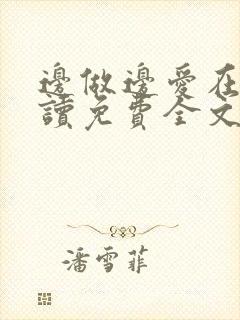 邊做邊愛在
讀免費全文
潘雪菲